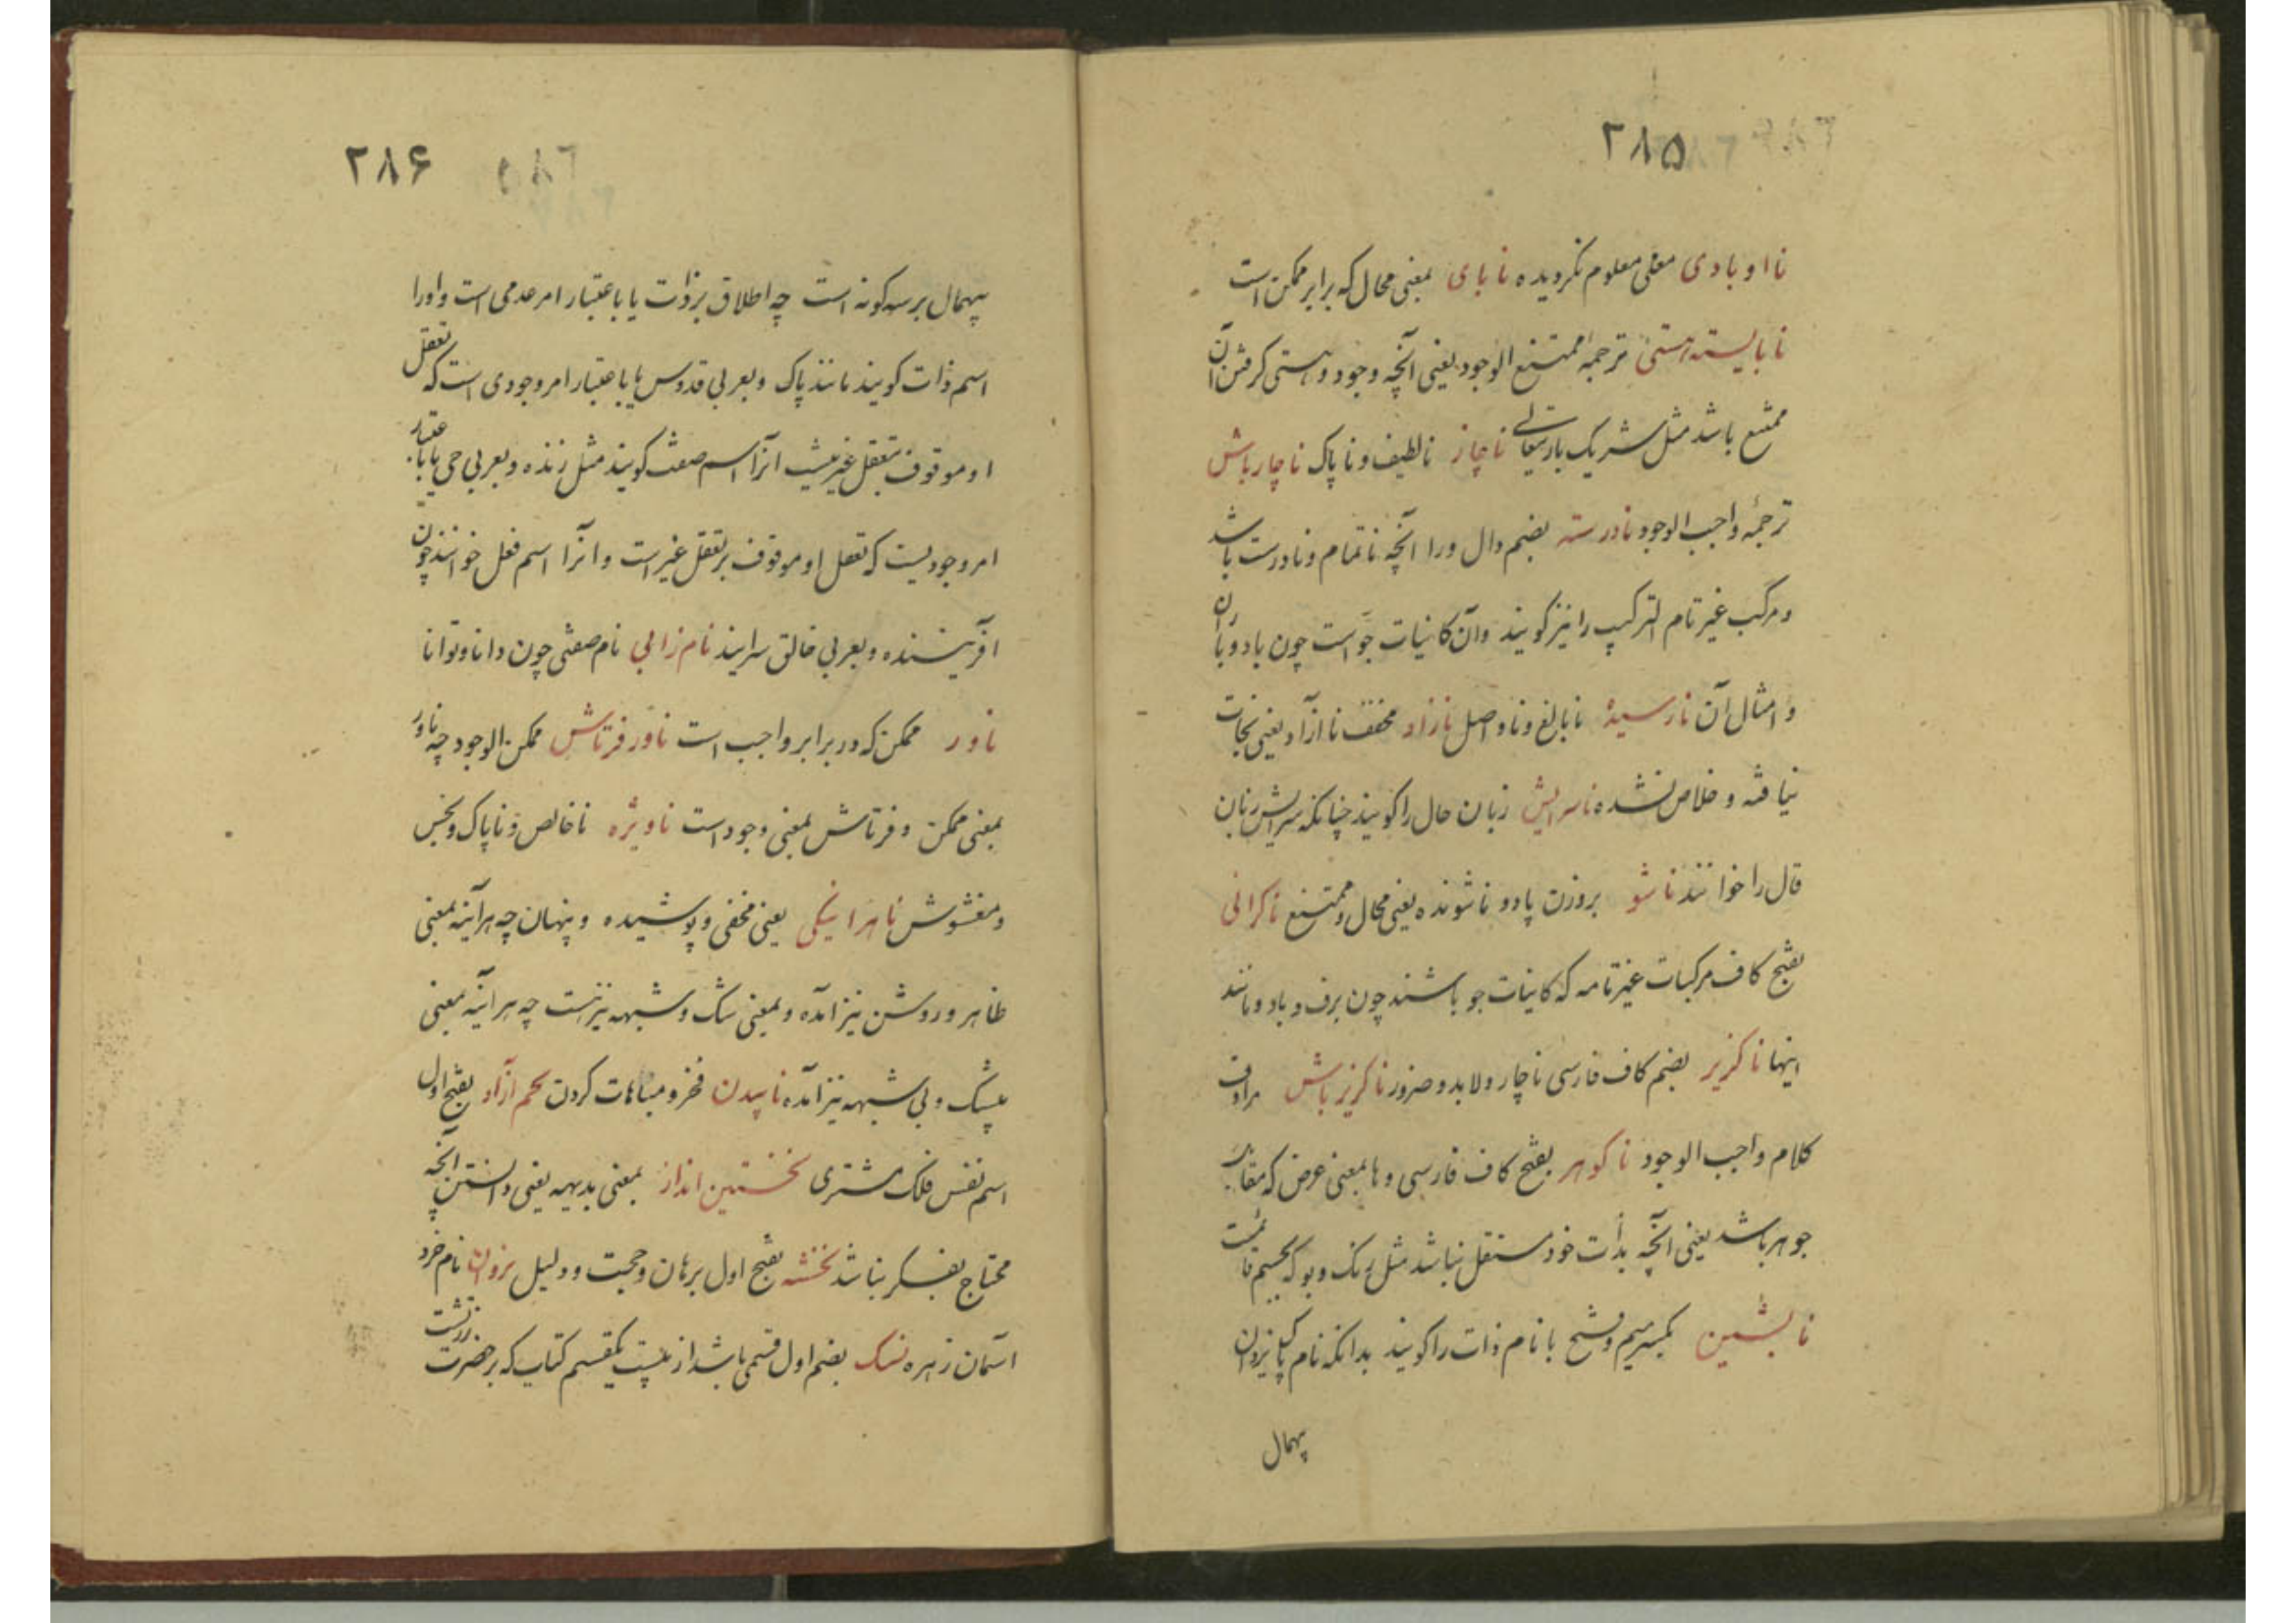 ۲۸۵
نا او بادی معنی معلوم نگردیده نا بای بمعنی محال که برابر ممکن است
نا بایسته هستی ترجمهٔ ممتنع الوجود یعنی آنچه وجود و هستی کرفتن آن
ممتنع باشد مثل شریک باریتعالی ناچاز نالطیف و ناپاک ناچار باش
ترجمهٔ واجب الوجود نادرسته بضم دال ورا آنچه ناتمام و نادرست باشد
و مرکب غیر تام الترکیب را نیز کویند و آن کاینات جو است چون باد و باران
و امثال آن نارسیده نابالغ و ناواصل نازاد مخفف ناآزاد یعنی نجات
نیافته و خلاص نشده ناسرایش زبان حال را کویند چنانکه سرایش زبان
قال را خوانند ناشو بروزن پادو ناشونده یعنی محال و ممتنع ناکرانی
بفتح کاف مرکبات غیر تامه که کاینات جو باشند چون برف و باد و مانند
اینها ناکزیر بضم کاف فارسی ناچار و لابد و ضرور ناکزیر باش مرادف
کلام واجب الوجود ناکوهر بفتح کاف فارسی و ها بمعنی عرض که مقابل
جوهر باشد یعنی آنچه بذات خود مستقل نباشد مثل رنک و بو که بجسم قائمست
بکسر میم و فتح با نام ذات را کویند بدانکه نام پاک یزدان
پهمال
۲۸۶
پیهمال بر سه کونه است چه اطلاق بر ذات یا باعتبار امر عدمی است و او را
اسم ذات کویند مانند پاک و بعربی قدوس یا باعتبار امر وجودی است که تعقل
او موقوف بتعقل غیر نیست آنرا اسم صفت کویند مثل زنده و بعربی حی یا باعتبار
امر وجودیست که تعقل او موقوف بر تعقل غیر است و آنرا اسم فعل خوانند چون
آفریننده و بعربی خالق سرایند نام زابی نام صفتی چون دانا و توانا
ناور ممکن که در برابر واجب است ناور فرتاش ممکن الوجود چه ناور
بمعنی ممکن و فرتاش بمعنی وجود است ناویژه ناخالص و ناپاک و نجس
و مغشوش ناهراینکی یعنی مخفی و پوشیده و پنهان چه هرآینه بمعنی
ظاهر و روشن نیز آمده و بمعنی شک و شبهه نیز هست چه هرآینه بمعنی
بیشک و بی شبهه نیز آمده ناپیدن فخر و مباهات کردن آزاد بفتح اول
اسم نفس فلک مشتری نخستین انداز بمعنی بدیهه یعنی دانستن آنچه
محتاج بفکر نباشد نخشه بفتح اول برهان و حجت و دلیل نام خرد
آسمان زهره نسک بضم اول قسمی باشد از بیست یکقسم کتاب که بر حضرت زردشت